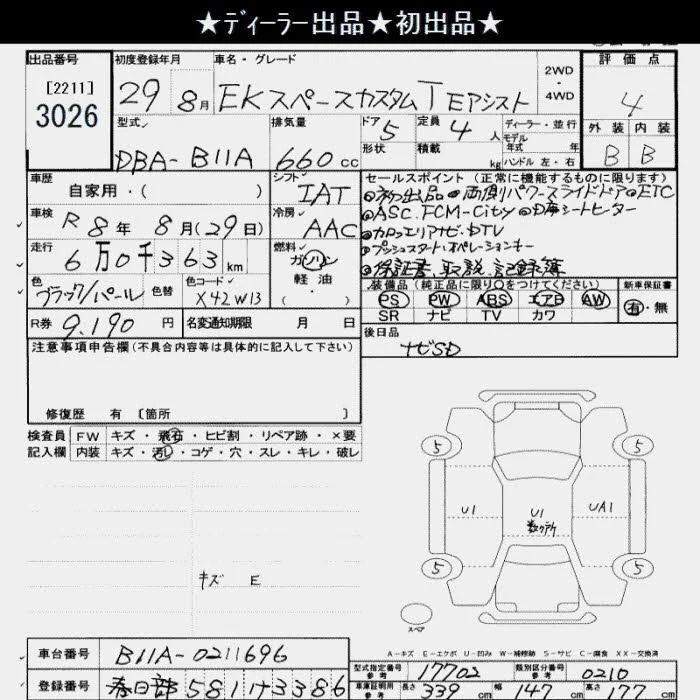 ★ディーラー出品★初出品★
出品番号 初度登録年月 車名・グレード 評価点
[2211]
3026
29 8月 EKスペースカスタムT Eアシスト 2WD・4WD 4
型式 排気量 ドア 5 定員 4人 ディーラー・並行 外装 内装
DBA-B11A 660cc 形状 積載 kg モデル年式 年 ハンドル 左・右 B B
車歴 自家用・( ) シフト IAT セールスポイント(正常に機能するものに限ります)
◎初出品 ◎両側パワースライドドア ◎ETC
車検 R8年 8月(29日) 冷房 AAC ◎ASC.FCM-City ◎シートヒーター
◎カロッツェリアナビ・DTV
走行 6万0千363km 燃料 ガソリン・軽油( ) ◎プッシュスタート・オペレーションキー
◎保証書、取説、記録簿
色 ブラック/パール 色替 色コード X42W13 装備品(純正品に限り○をつけてください) 新車保証書
PS PW ABS エアB AW 有・無
SR ナビ TV カワ
R券 9,190円 名変通知期限 月 日 後日品
ナビSD
注意事項申告欄(不具合内容等は具体的に記入して下さい)
修復歴 有 [箇所 ]
検査員 FW キズ・飛石・ヒビ割・リペア跡・×要
記入欄 内装 キズ・汚レ・コゲ・穴・スレ・キレ・破レ
5 5
U1 U1 UA1
5 5
キズ E
スペア
A-キズ E-エクボ U-凹み W-補修跡 S-サビ C-腐食 XX-交換済
車台番号 B11A-0211696 型式指定番号 参考 17702 類別区分番号 参考 0210
登録番号 春日部 581 3386 車庫証明用 参考 長さ 339cm 幅 147cm 高さ 177cm